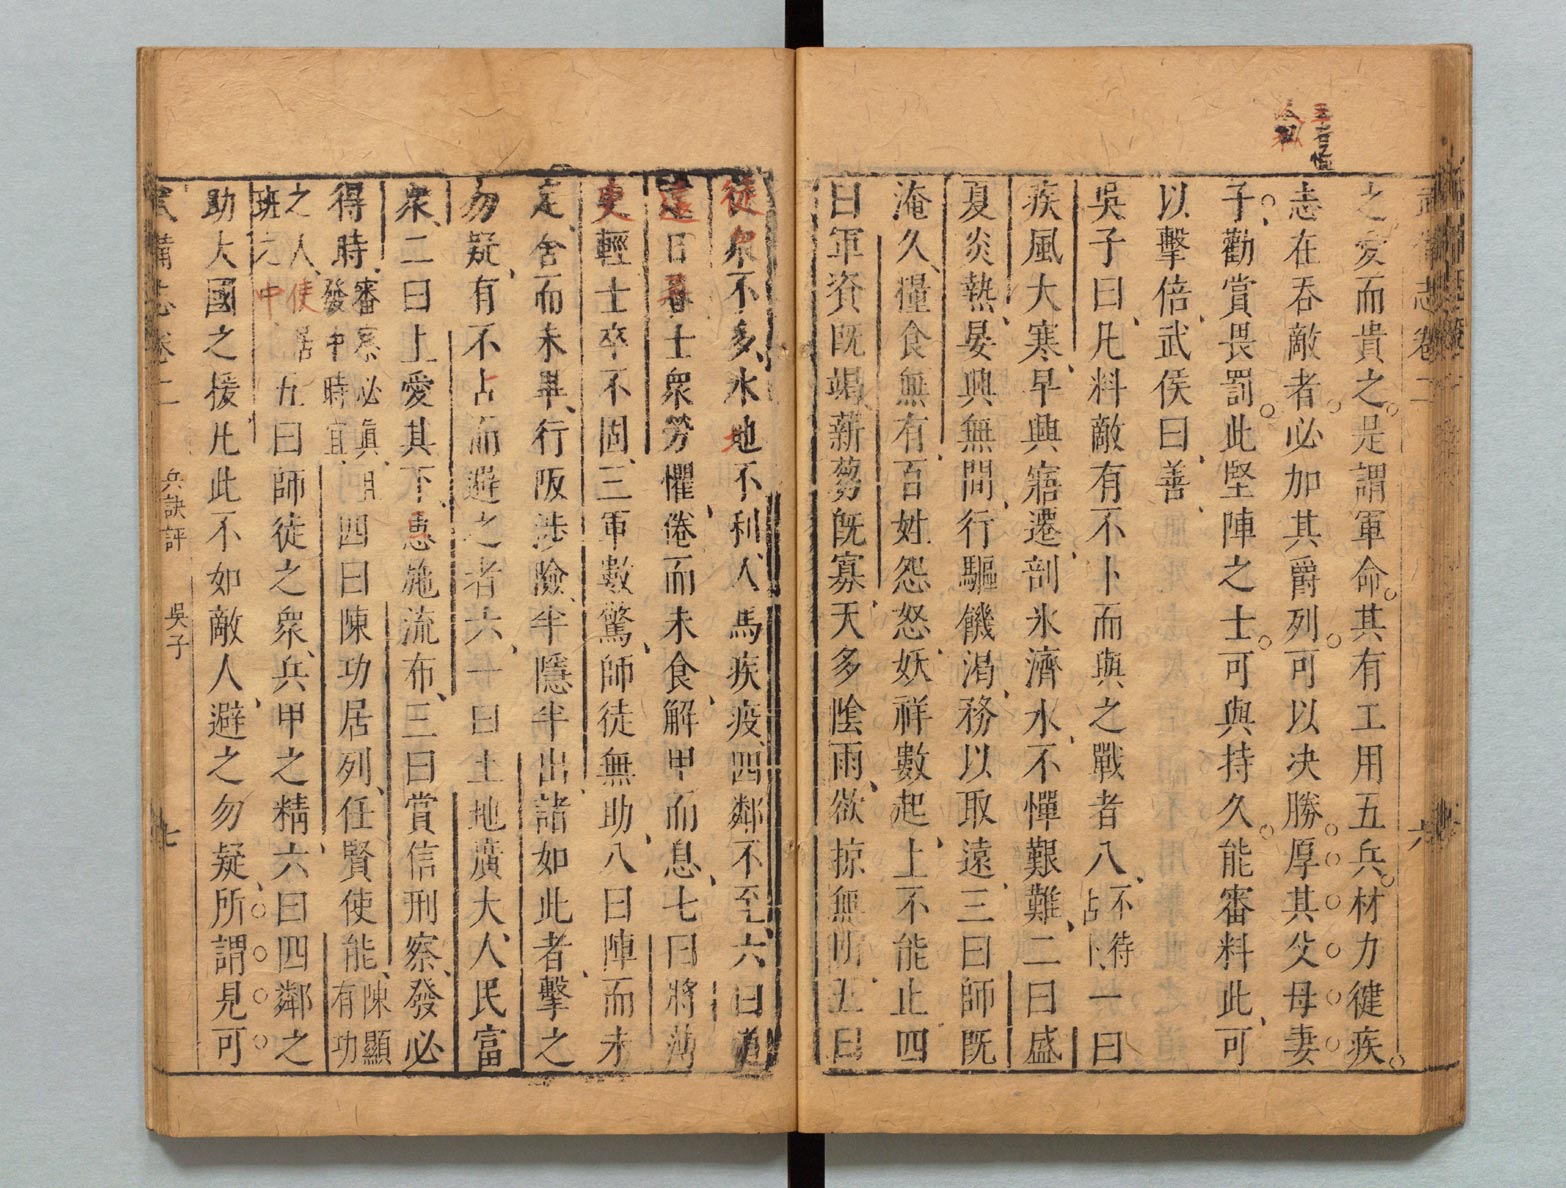 之愛而貴之是謂軍命其有工用五兵材力健疾
志在吞敵者必加其爵列可以决勝厚其父母妻
子勸賞畏罰此堅陣之士可與持久能審料此可
以擊倍武侯曰善
吳子曰凡料敵有不卜而與之戰者八不待占一曰
疾風大寒早興寤遷剖氷濟水不憚艱難二曰盛
夏炎熱晏興無間行驅饑渴務以取遠三曰師旣
淹久糧食無有百姓怨怒妖祥數起上不能止四
曰軍資旣竭薪蒭旣寡天多陰雨欲掠無所五曰
徒衆不多水地不利人馬疾疫四鄰不至六曰道
遠日暮士衆勞懼倦而未食解甲而息七曰將薄
吏輕士卒不固三軍數驚師徒無助八曰陣而未
定舍而未畢行阪涉險半隱半出諸如此者擊之
勿疑有不占而避之者六一曰土地廣大人民富
衆二曰上愛其下惠施流布三曰賞信刑察發必
得時審察必眞發中時宜四曰陳功居列任賢使能陳顯有功
之人使居班之中五曰師徒之衆兵甲之精六曰四鄰之
助大國之援凡此不如敵人避之勿疑所謂見可
武備志卷二 兵訣評 吳子 七